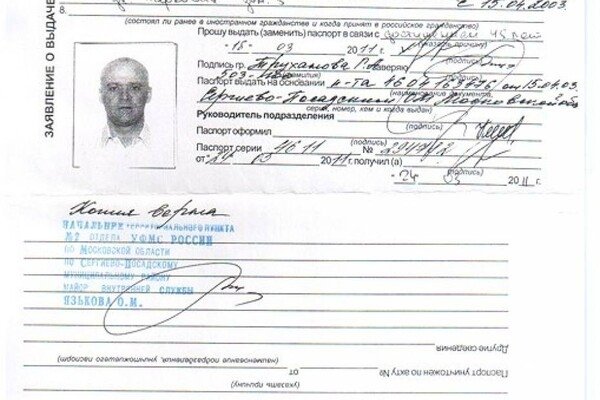 ЗАЯВЛЕНИЕ О ВЫДАЧЕ
с 15.04.2003
8.
(состоял ли ранее в иностранном гражданстве и когда принят в российское гражданство)
Прошу выдать (заменить) паспорт в связи с достижением 45 лет
(указать причину)
"15" 03 2011 г.
(подпись)
Подпись гр. Труханова Р.А. заверяю
(фамилия)
Паспорт выдать на основании п-та 46 04 от 15.04.03.
(наименование документа,
Сергиево-Посадским ОМ Московской обл
серия, номер, кем и когда выдан)
Руководитель подразделения
(подпись)
Паспорт оформил
(подпись)
Паспорт серии 4611 №
от "24" 03 2011 г. получил (а)
(подпись)
"24" 03 2011 г.
Копия верна
НАЧАЛЬНИК ТЕРРИТОРИАЛЬНОГО ПУНКТА
№2 ОТДЕЛА УФМС РОССИИ
ПО МОСКОВСКОЙ ОБЛАСТИ
ПО СЕРГИЕВО-ПОСАДСКОМУ
МУНИЦИПАЛЬНОМУ РАЙОНУ
МАЙОР ВНУТРЕННЕЙ СЛУЖБЫ
ЯЗЬКОВА О.М.
Другие сведения
(наименование подразделения, уничтожившего паспорт)
Паспорт уничтожен по акту №
(указать причину)